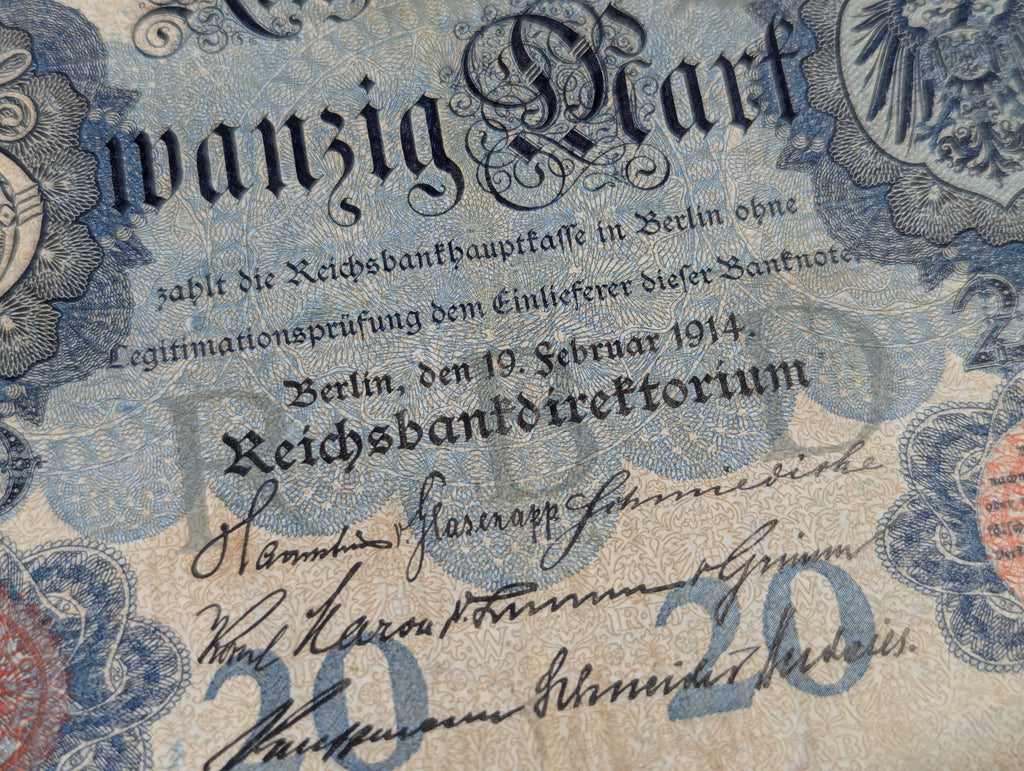 wanzig Mark
zahlt die Reichsbankhauptkasse in Berlin ohne
Legitimationsprüfung dem Einlieferer dieser Banknote.
Berlin, den 19. Februar 1914.
Reichsbankdirektorium
RBD
v. Glasenapp Schmiedicke
Korn Maron v. Lumm v Grimm
Kauffmann Schneider
20 20